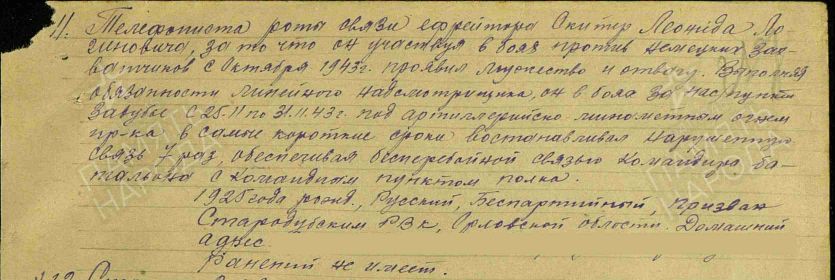 11. Телефониста роты связи ефрейтора Скитер Леонида Ло
гиновича, за то что он участвуя в боях против немецких зах-
ватчиков с октября 1943г. проявил мужество и отвагу. Выполняя
обязанности линейного надсмотрщика, он в боях за нас. пункт
Завубы с 25.11 по 31.11.43г. под артиллерийско-минометным огнем
пр-ка в самые короткие сроки востанавливал нарушенную
связь 7 раз, обеспечивая бесперебойной связью командира ба-
тальона с командным пунктом полка.
1925 года рожд., Русский, Беспартийный, призван
Стародубским РВК, Орловской области. Домашний
адрес
Ранений не имеет.